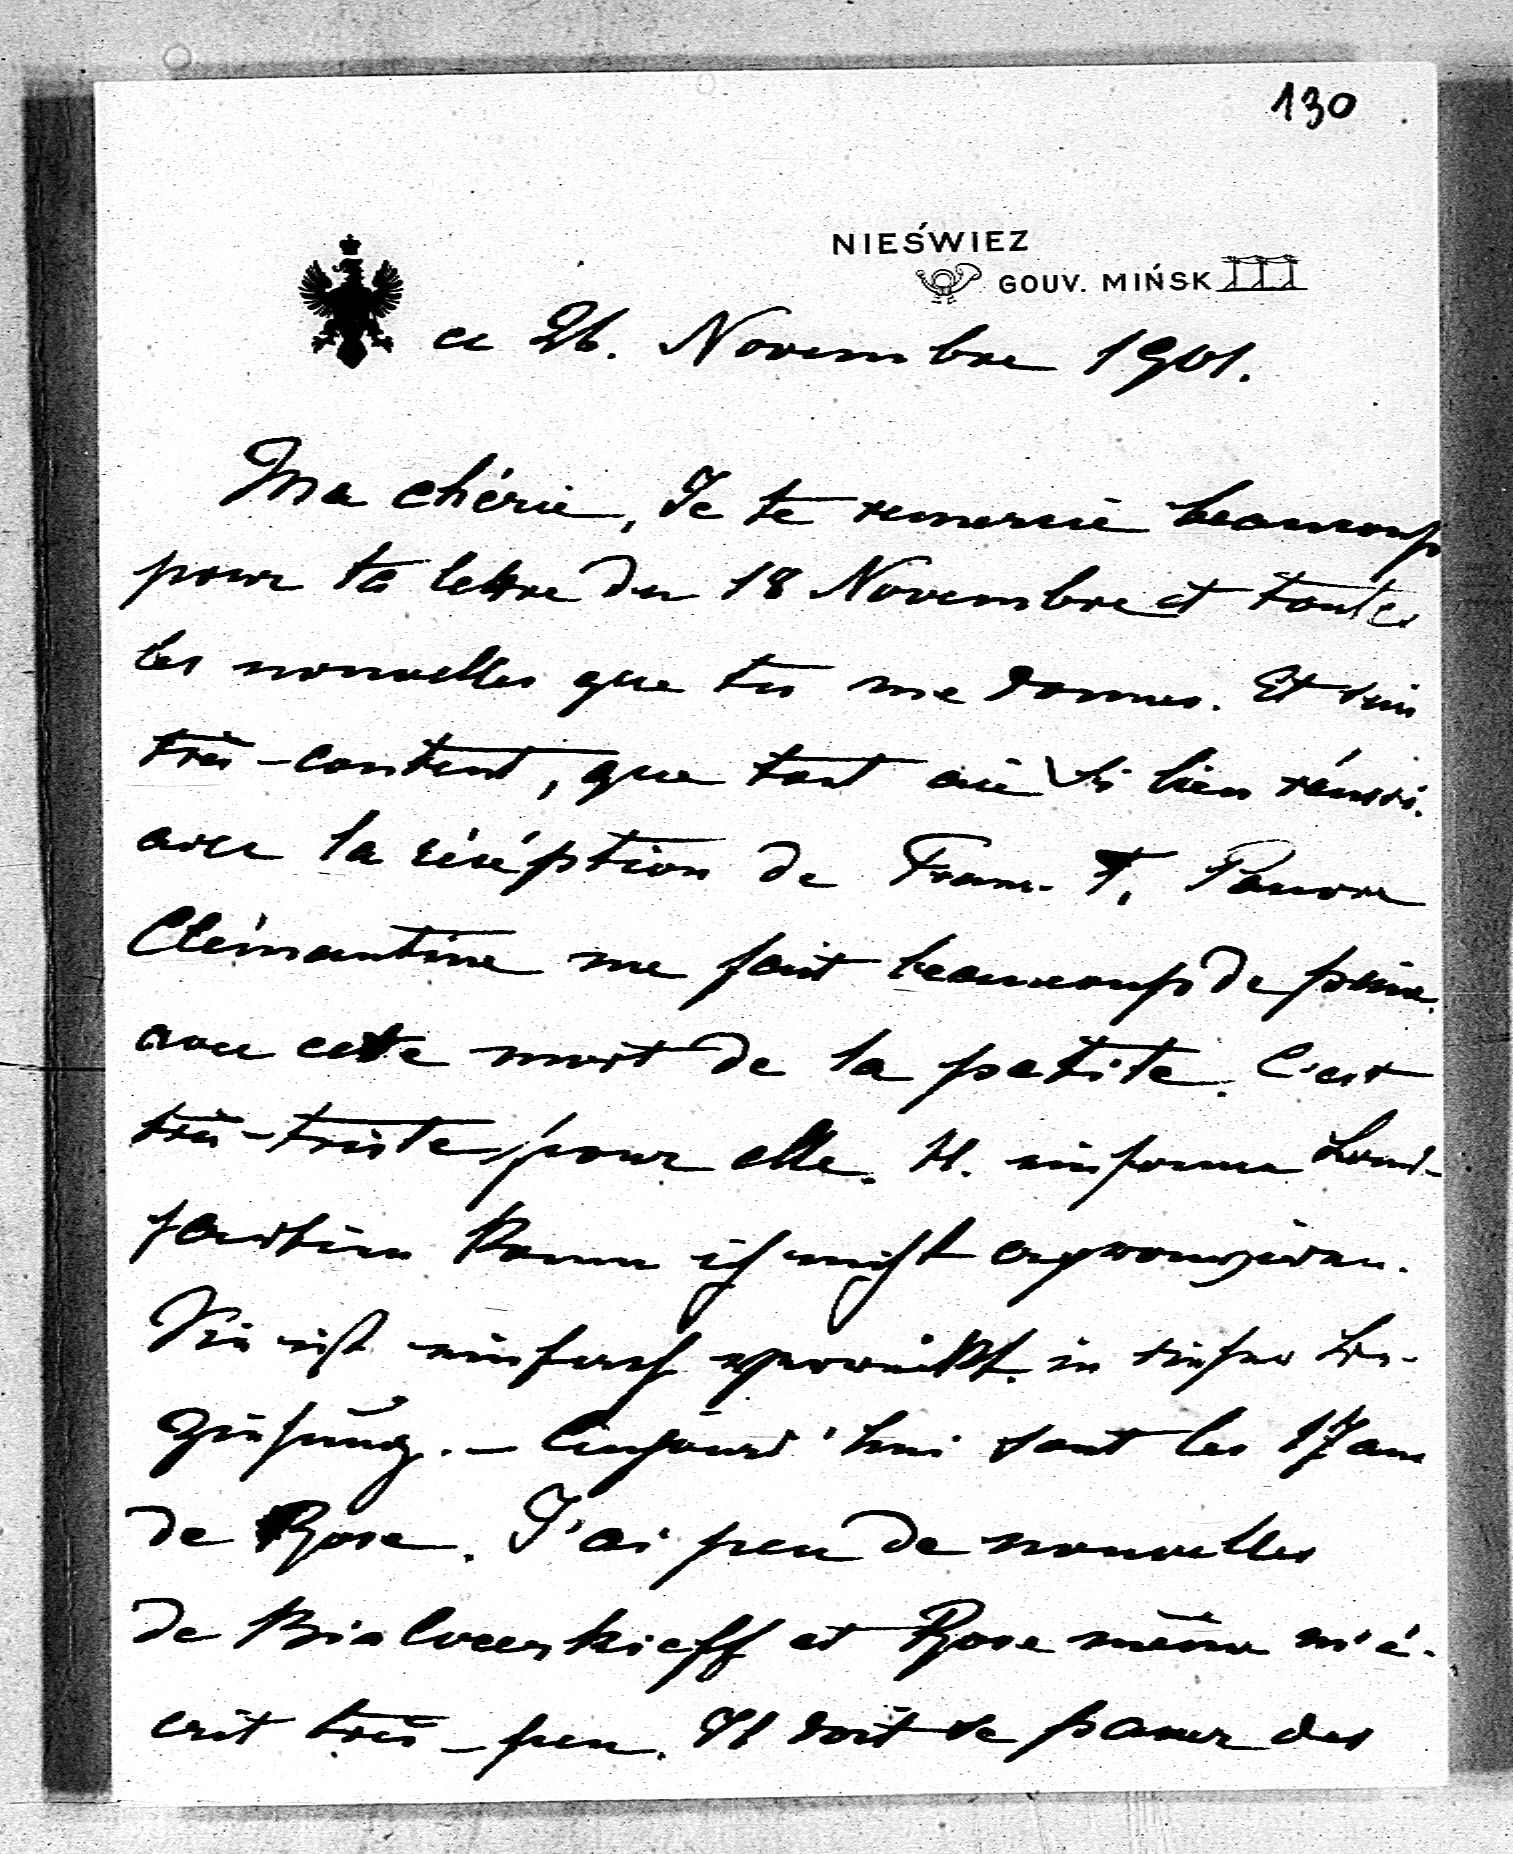 130
NIEŚWIEZ
GOUV. MIŃSK
ce 26. Novembre 1901.
Ma chérie, Je te remercie beaucoup
pour ta lettre du 18 Novembre et toutes
les nouvelles que tu me donnes. Et suis
très-content, que tout aie si bien réussi.
avec la réception de Franc. F. Pauvre
Clémantine me fait beaucoup de peine.
avec cette mort de la petite. C'est
très-triste pour elle. H. unserer
kann ich nicht
Sie ist einfach verrückt in dieser Be-
ziehung. — Aujourd'hui sont les 17 ans
de Rose. J'ai peu de nouvelles
de Bialocerkieff et Rose même m'é-
crit très-peu. Il doit se passer des